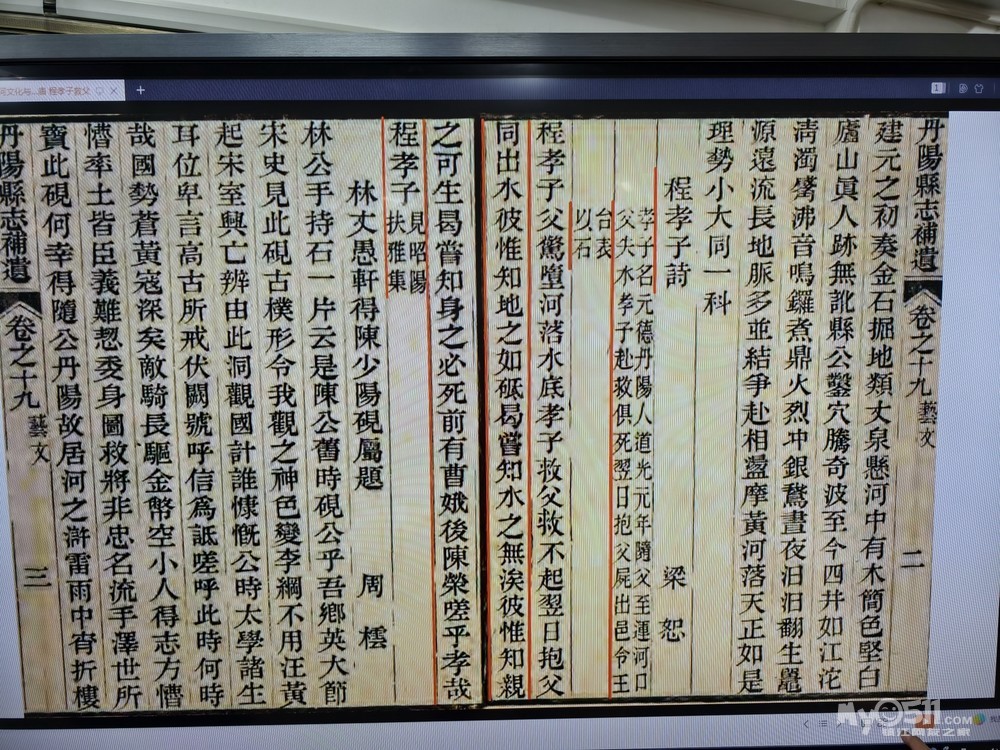 河文化与...濱 程孝子救父
丹陽縣志補遺 卷之十九 藝文 二
建元之初奏金石掘地類丈泉懸河中有木簡色堅白
廬山眞人跡無訛縣公鑿穴騰奇波至今四井如江沱
淸濁觱沸音鳴鑼煮鼎火烈冲銀鶩晝夜汩汩翻生鼉
源遠流長地脈多並結爭赴相盪摩黃河落天正如是
理勢小大同一科
程孝子詩 梁恕
孝子名元德丹陽人道光元年隨父至運河口
父失水孝子赴救俱死翌日抱父屍出邑令王
台表
以石
程孝子父驚墮河落水底孝子救父救不起翌日抱父
同出水彼惟知地之如砥曷嘗知水之無涘彼惟知親
之可生曷嘗知身之必死前有曹娥後陳榮嗟乎孝哉
程孝子 見昭陽
扶雅集
林丈愚軒得陳少陽硯屬題 周橒
林公手持石一片云是陳公舊時硯公乎吾鄉英大節
宋史見此硯古樸形令我觀之神色變李綱不用汪黃
起宋室興亡辨由此洞觀國計誰慷慨公時太學諸生
耳位卑言高古所戒伏闕號呼信爲詆嗟呼此時何時
哉國勢蒼黃寇深矣敵騎長驅金幣空小人得志方懵
懵率土皆臣義難恝委身圖救將非忠名流手澤世所
寶此硯何幸得隨公丹陽故居河之滸雷雨中宵折樓
丹陽縣志補遺 卷之十九 藝文 三
My0511.COM
镇江网友之家